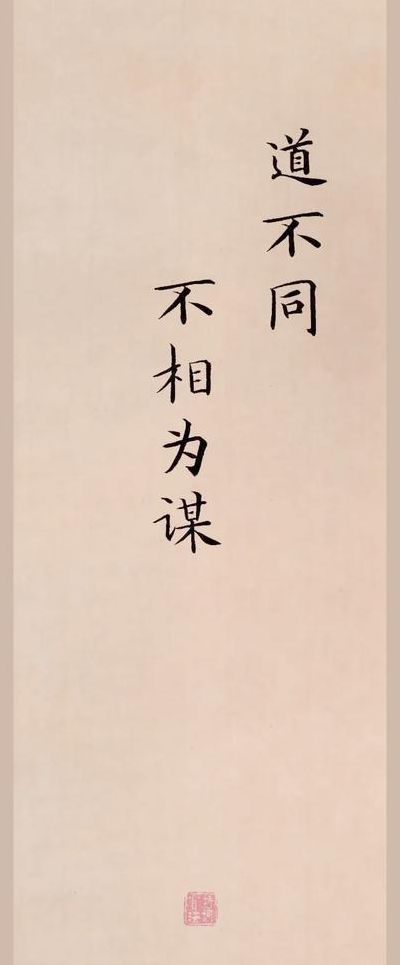 道不同
不相为谋